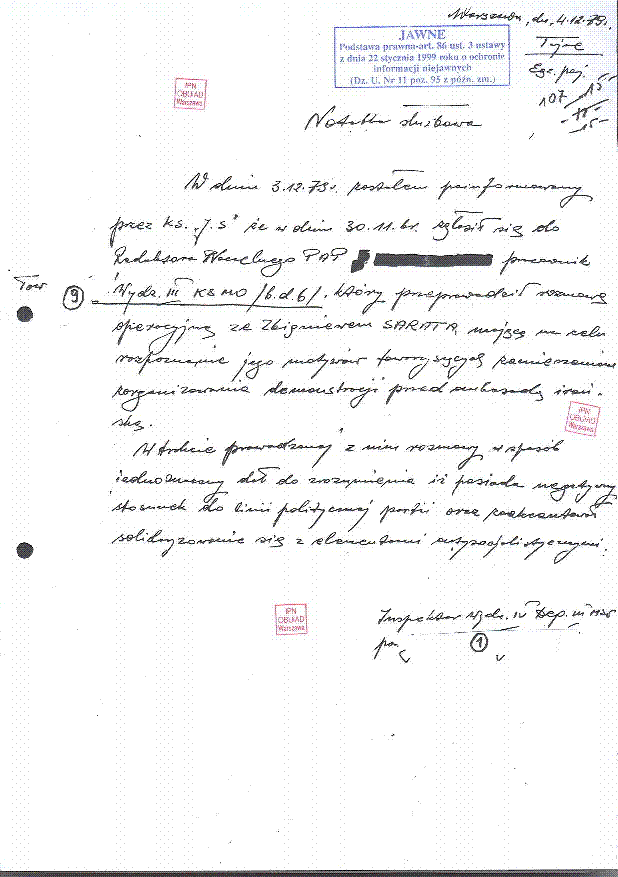 Warszawa, dn. 4.12.79r.
JAWNE
Podstawa prawna-art. 86 ust. 3 ustawy
z dnia 22 stycznia 1999 roku o ochronie
informacji niejawnych
(Dz. U. Nr 11 poz. 95 z późn. zm.)
Tajne
Egz. poj.
107
15
IPN
OBUiAD
Warszawa
Notatka służbowa
W dniu 3.12.79r. zostałem poinformowany
przez KS. "J.S" że w dniu 30.11.br. zgłosił się do
Redaktora Naczelnego PAP pracownik
Tow
9 Wydz. III KSMO /b.d.b/. który przeprowadził rozmowę
operacyjną ze Zbigniewem mającą na celu
rozpoznanie jego motywów zamierzeniom
zorganizowania demonstracji przed ambasadą irań-
ską.
IPN
OBUiAD
Warszawa
W trakcie prowadzonej z nim rozmowy w sposób
jednoznaczny dał do zrozumienia iż posiada negatywny
stosunek do linii politycznej partii oraz
solidaryzowanie się z elementami antysocjalistycznymi.
IPN
OBUiAD
Warszawa
Inspektor Wydz. IV Dep. III MSW
1